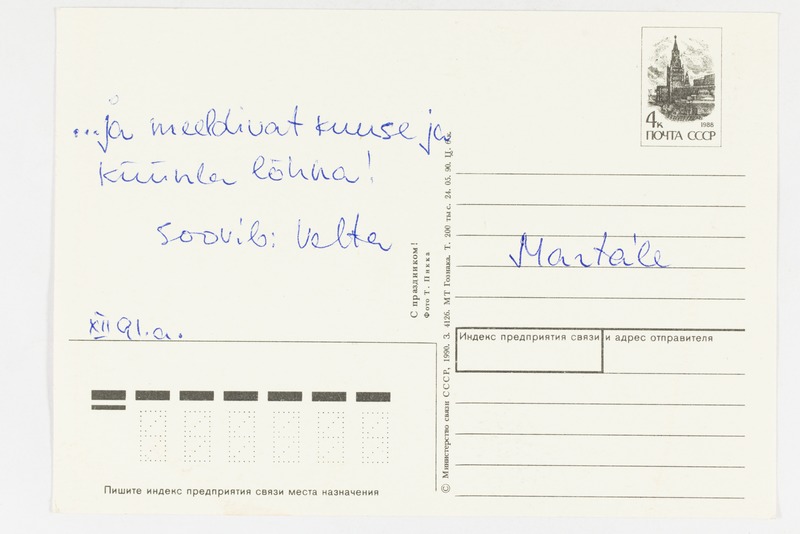 ...ja meeldivat kuuse ja
küünla lõhna!
soovib: Velta
XII 91.a.
Пишите индекс предприятия связи места назначения
С праздником!
Фото Т. Пикка
© Министерство связи СССР, 1990. З. 4126. МТ Гознака. Т. 200 тыс. 24. 05. 90. Ц. 6к.
4к
1988
ПОЧТА СССР
Martale
Индекс предприятия связи и адрес отправителя